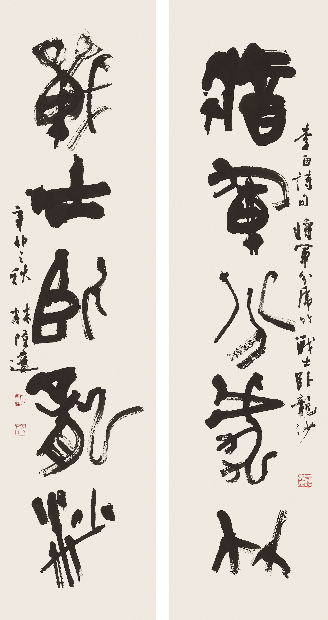 李白詩句將軍分虎竹戰士臥龍沙
將軍分虎竹
戰士臥龍沙
辛卯之秋林隆達